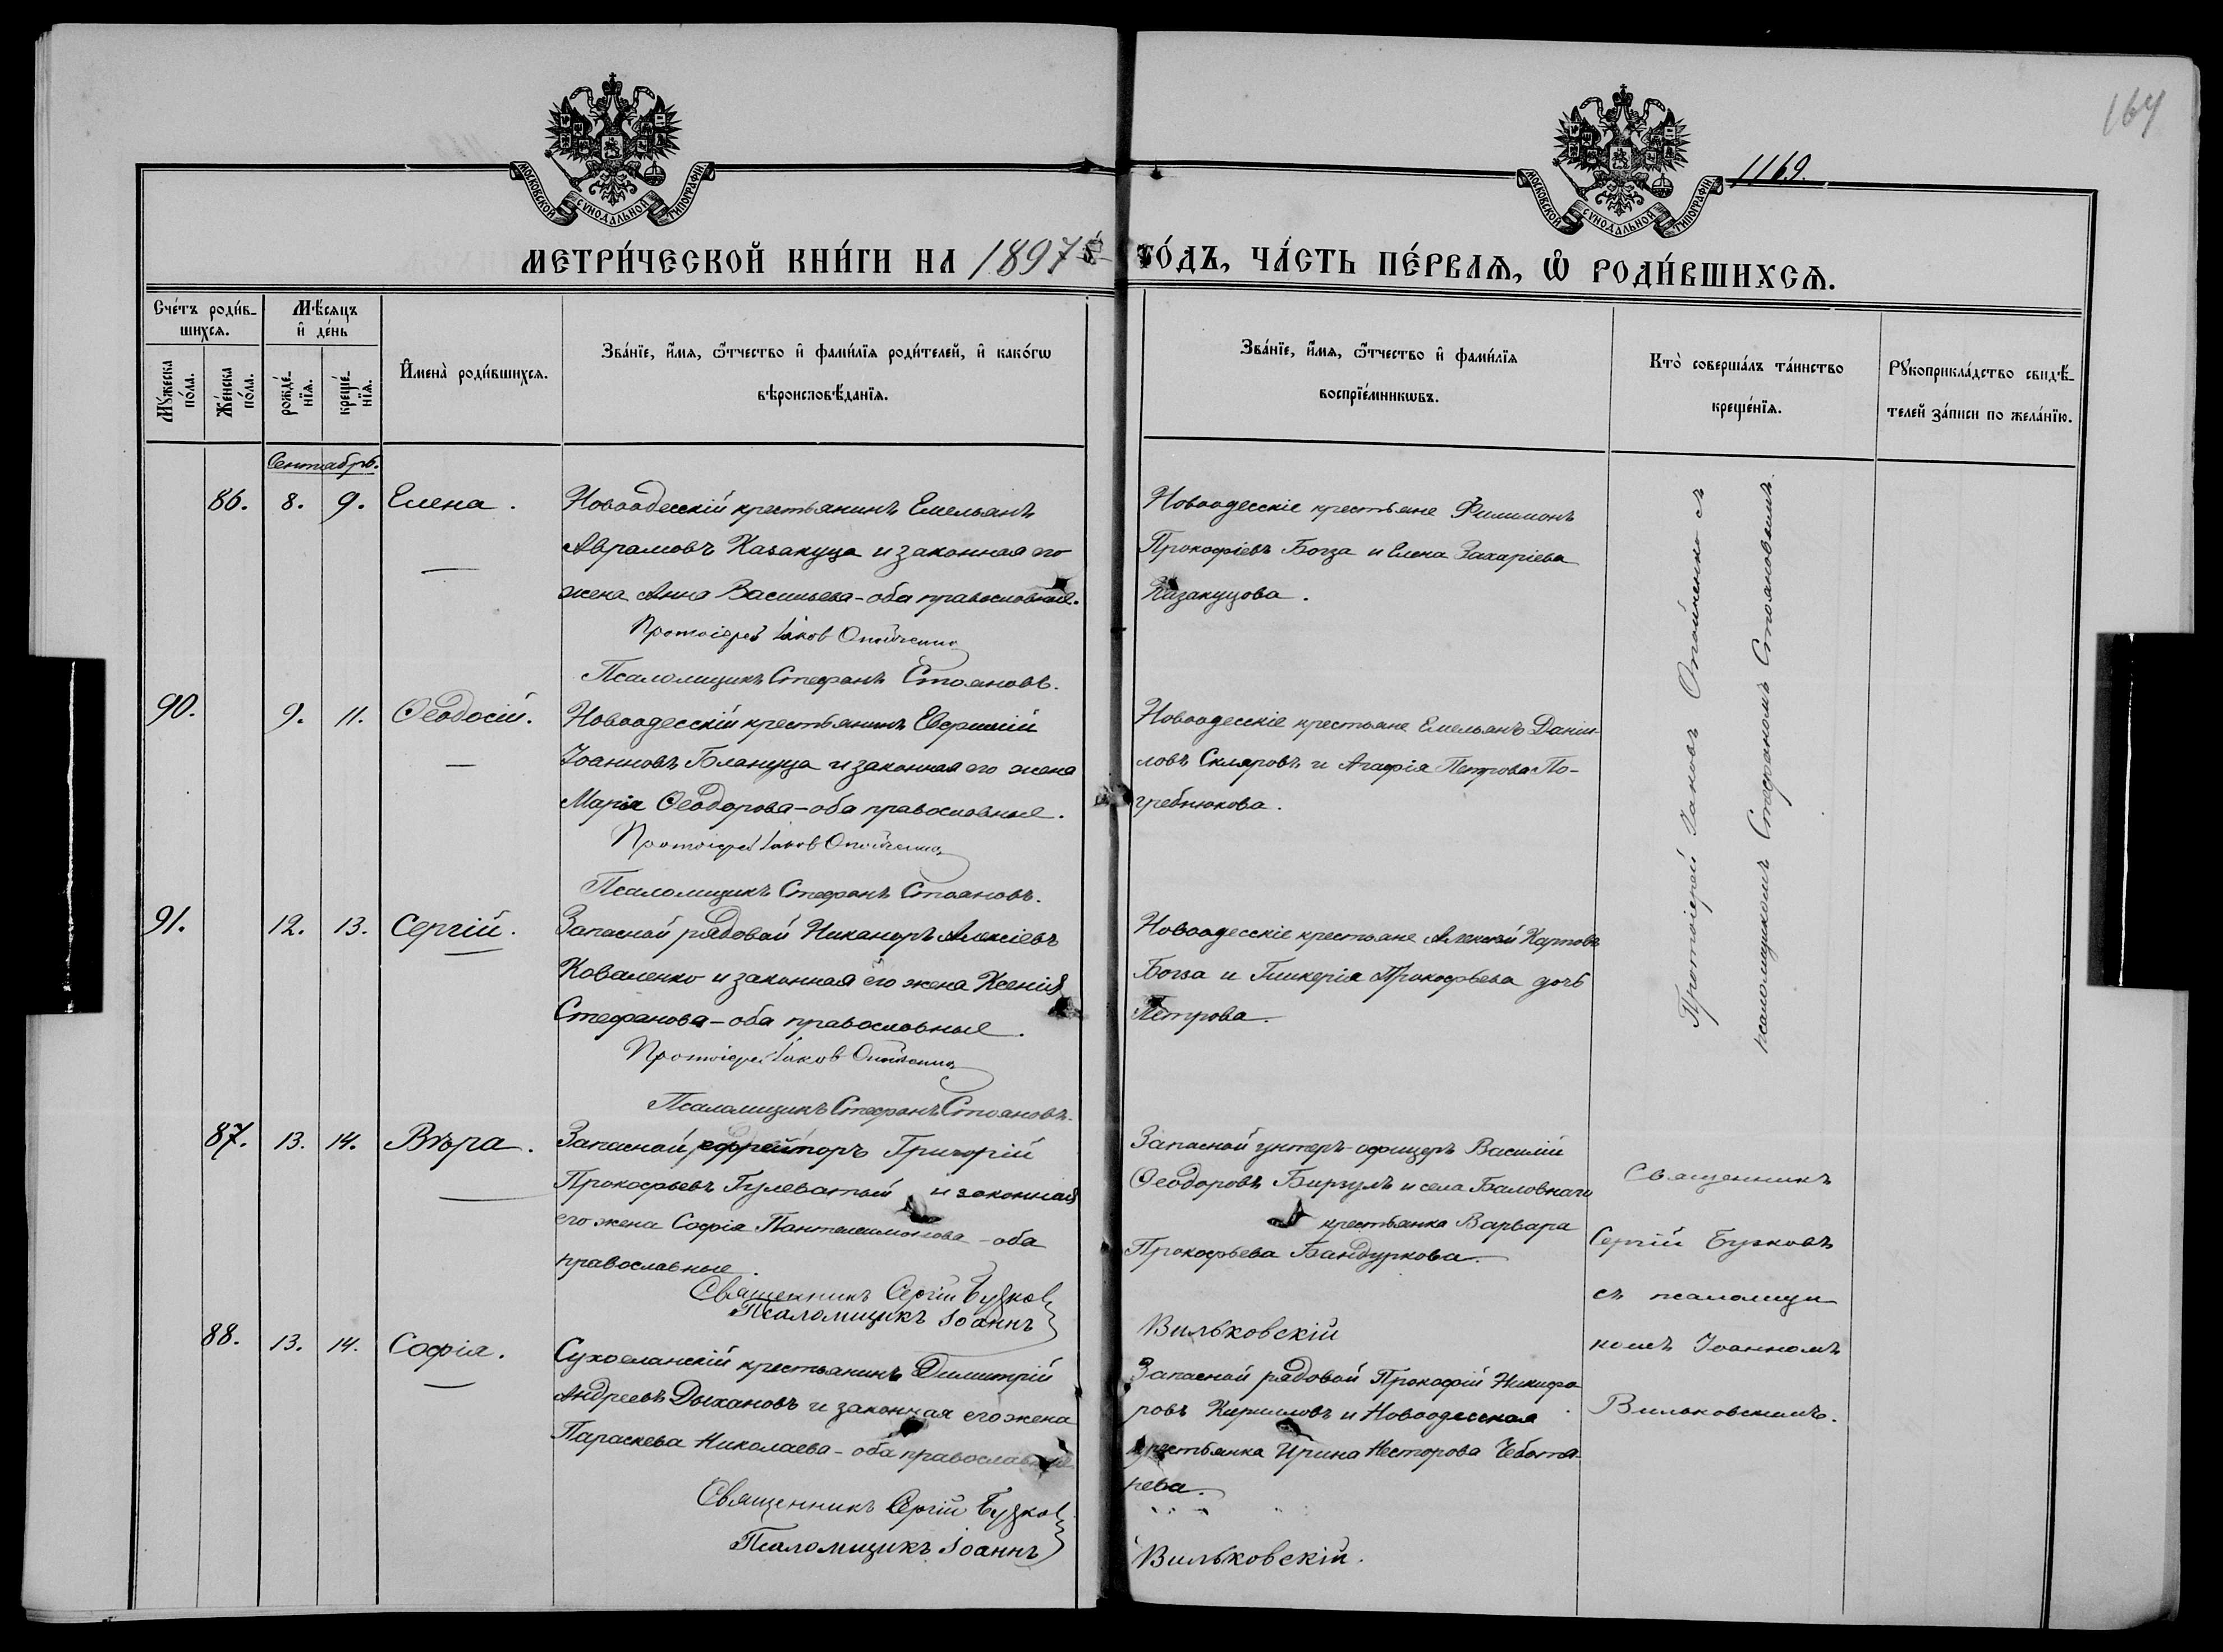 164
1169.
МОСКОВСКОЙ СУНОДАЛЬНОЙ ТИПОГРАФІИ.
МОСКОВСКОЙ СУНОДАЛЬНОЙ ТИПОГРАФІИ.
МЕТРИ́ЧЕСКОЙ КНИ́ГИ НА 1897 ГО́ДЪ, ЧА́СТЬ ПЕ́РВАѦ, Ѡ҆ РОДИ́ВШИХСѦ.
Сче́тъ роди́в-
шихсѧ.
Мꙋ́жеска
по́ла.
Же́нска
по́ла.
Мѣ́сѧцъ
и҆ де́нь
рожде́-
нїѧ.
креще́-
нїѧ.
И҆мена̀ роди́вшихсѧ.
Зва́нїе, и҆́мѧ, ѻ҆́тчество и҆ фами́лїѧ роди́телей, и҆ како́гѡ
вѣроисповѣ́данїѧ.
Зва́нїе, и҆́мѧ, ѻ҆́тчество и҆ фами́лїѧ
воспрїе́мникѡвъ.
Кто̀ соверша́лъ та́инство
креще́нїѧ.
Рꙋкоприкла́дство свидѣ́-
телей за́писи по жела́нїю.
Сентябрь.
86. 8. 9. Елена.
Новоодесскій крестьянинъ Емельянъ
Аврамовъ Казакуца и законная его
жена Анна Васильева - оба православные.
Протоіерей Іаков Опойченко
Псаломщикъ Стефанъ Стояновъ.
Новоодесскіе крестьяне Филимонъ
Прокофіевъ Богза и Елена Захаріева
Казакуцова.
Протоіерей Іаковъ Опойченко съ
псаломщикомъ Стефаномъ Стояновымъ.
90. 9. 11. Ѳеодосій.
Новоодесскій крестьянинъ Евфимій
Іоанновъ Блануца и законная его жена
Марія Ѳеодорова - оба православные.
Протоіерей Іаков Опойченко
Псаломщикъ Стефанъ Стояновъ.
Новоодесскіе крестьяне Емельянъ Даніи-
ловъ Скляровъ и Агафія Петрова По-
гребнюкова.
91. 12. 13. Сергій.
Запасной рядовой Никаноръ Алексіевъ
Коваленко и законная его жена Ксенія
Стефанова - оба православные.
Протоіерей Іаков Опойченко
Псаломщикъ Стефанъ Стояновъ.
Новоодесскіе крестьяне Алексій Карповъ
Богза и Гликерія Прокофьева дочь
Петрова.
87. 13. 14. Вѣра.
Запасной ефрейторъ Григорій
Прокофьевъ Гулеватый и законная
его жена Софія Пантелеимонова - оба
православные.
Священникъ Сергій Бузков
Псаломщикъ Іоаннъ
Запасной унтеръ-офицеръ Василій
Ѳеодоровъ Биргулъ и села Баловнаго
крестьянка Варвара
Прокофьева Бандуркова.
Вильковскій
Священникъ
Сергій Бузковъ
съ псаломщи
комъ Іоанномъ
Вильковскимъ.
88. 13. 14. Софія.
Сухоеланскій крестьянинъ Димитрій
Андреевъ Дыхановъ и законная его жена
Параскева Николаева - оба православные
Священникъ Сергій Бузков
Псаломщикъ Іоаннъ
Запасной рядовой Прокофій Никифо
ровъ Кирилловъ и Новоодесская
крестьянка Ирина Несторова Чебота-
рева.
Вильковскій.